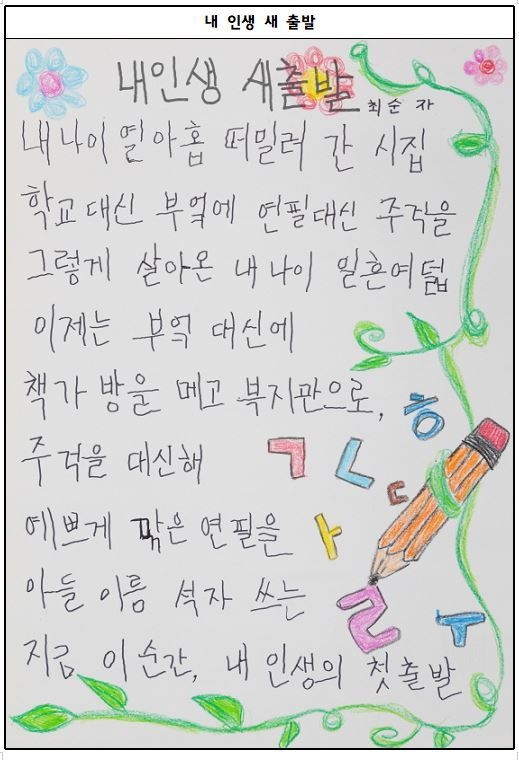 내 인생 새 출발
내인생 새출발 최순자
내 나이 열아홉 떠밀려 간 시집
학교대신 부엌에 연필대신 주걱을
그렇게 살아온 내 나이 일흔여덟
이제는 부엌 대신에
책가방을 메고 복지관으로,
주걱을 대신해
예쁘게 깎은 연필을
아들 이름 석자 쓰는
지금 이 순간, 내 인생의 첫출발
ㄱ ㄴ ㄷ ㅎ
ㅏ ㄹ ㅜ